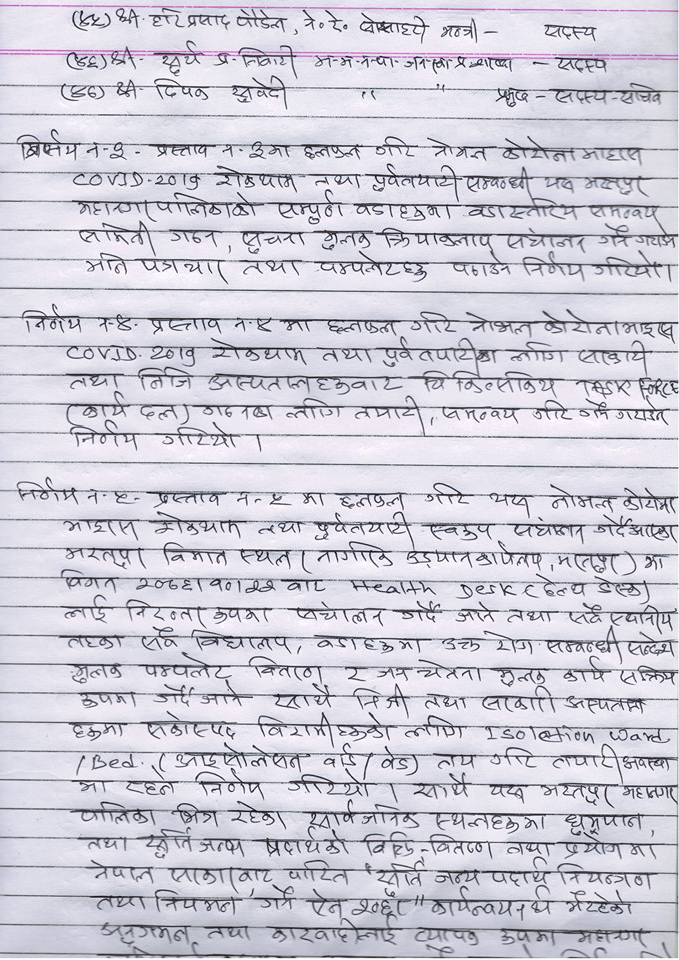 (५५) श्री. हरि प्रसाद पौडेल, ने. रे. सोसाइटी मन्त्री - सदस्य
(५६) श्री. सूर्य प्र. तिवारी भ. म. न. पा. जनस्वा. प्र. शाखा - सदस्य
(५७) श्री. दिपक सुवेदी " " प्रमुख - सदस्य-सचिव
निर्णय नं-३- प्रस्ताव नं-३मा छलफल गरि नोभल कोरोना भाइरस
COVID-2019 रोकथाम तथा पुर्वतयारी सम्बन्धी यस भरतपुर
महानगरपालिकाको सम्पुर्ण वडाहरुमा वडास्तरिय समन्वय
समिती गठन, सुचना मुलक क्रियाकलाप संचालन गर्न गराउन
भनि पत्रचार तथा पम्पलेटहरु पठाउने निर्णय गरियो।
निर्णय नं-४. प्रस्ताव नं-४ मा छलफल गरि नोभल कोरोना भाइरस
COVID-2019 रोकथाम तथा पुर्वतयारीका लागि सरकारी
तथा निजि अस्पतालहरुबाट चिकित्सकिय TASK FORCE
(कार्य दल) गठनका लागि तयारी, समन्वय गरि गर्न गराउने
निर्णय गरियो।
निर्णय नं-५- प्रस्ताव नं-५ मा छलफल गरि यस नोभल कोरोना
भाइरस रोकथाम तथा पुर्वतयारी स्वरुप संचालन गर्दै आएका
भरतपुर विमान स्थल (नागरिक उड्यान कार्यलय, भरतपुर) मा
विगत २०७६।१०।२२ बाट Health Desk (हेल्थ डेस्क)
लाई निरन्तर रुपमा संचालन गर्दै जाने तथा सबै स्थानीय
तहका सबै विद्यालय, वडाहरुमा उक्त रोग सम्बन्धी सन्देश
मुलक पम्पलेट वितरण र जनचेतना मुलक कार्य सक्रिय
रुपमा गर्दै जाने साथै निजी तथा सरकारी अस्पताल
हरुमा शंकास्पद विरामीहरुको लागि Isolation Ward
/Bed. (आइसोलेसन वार्ड/वेड) तय गरि तयारी अवस्था
मा रहने निर्णय गरियो। साथै यस भरतपुर महानगर
पालिका भित्र रहेका सार्वजनिक स्थलहरुमा धुम्रपान,
तथा सुर्तिजन्य प्रदार्थको विक्रि-वितरण तथा प्रयोगमा
नेपाल सरकारबाट पारित "सुर्ति जन्य पदार्थ नियन्त्रण
तथा नियमन गर्ने ऐन २०६८" कार्यन्वयनार्थ भैरहेको
अनुगमन तथा कारवाहीलाई व्यापक रुपमा महानगर